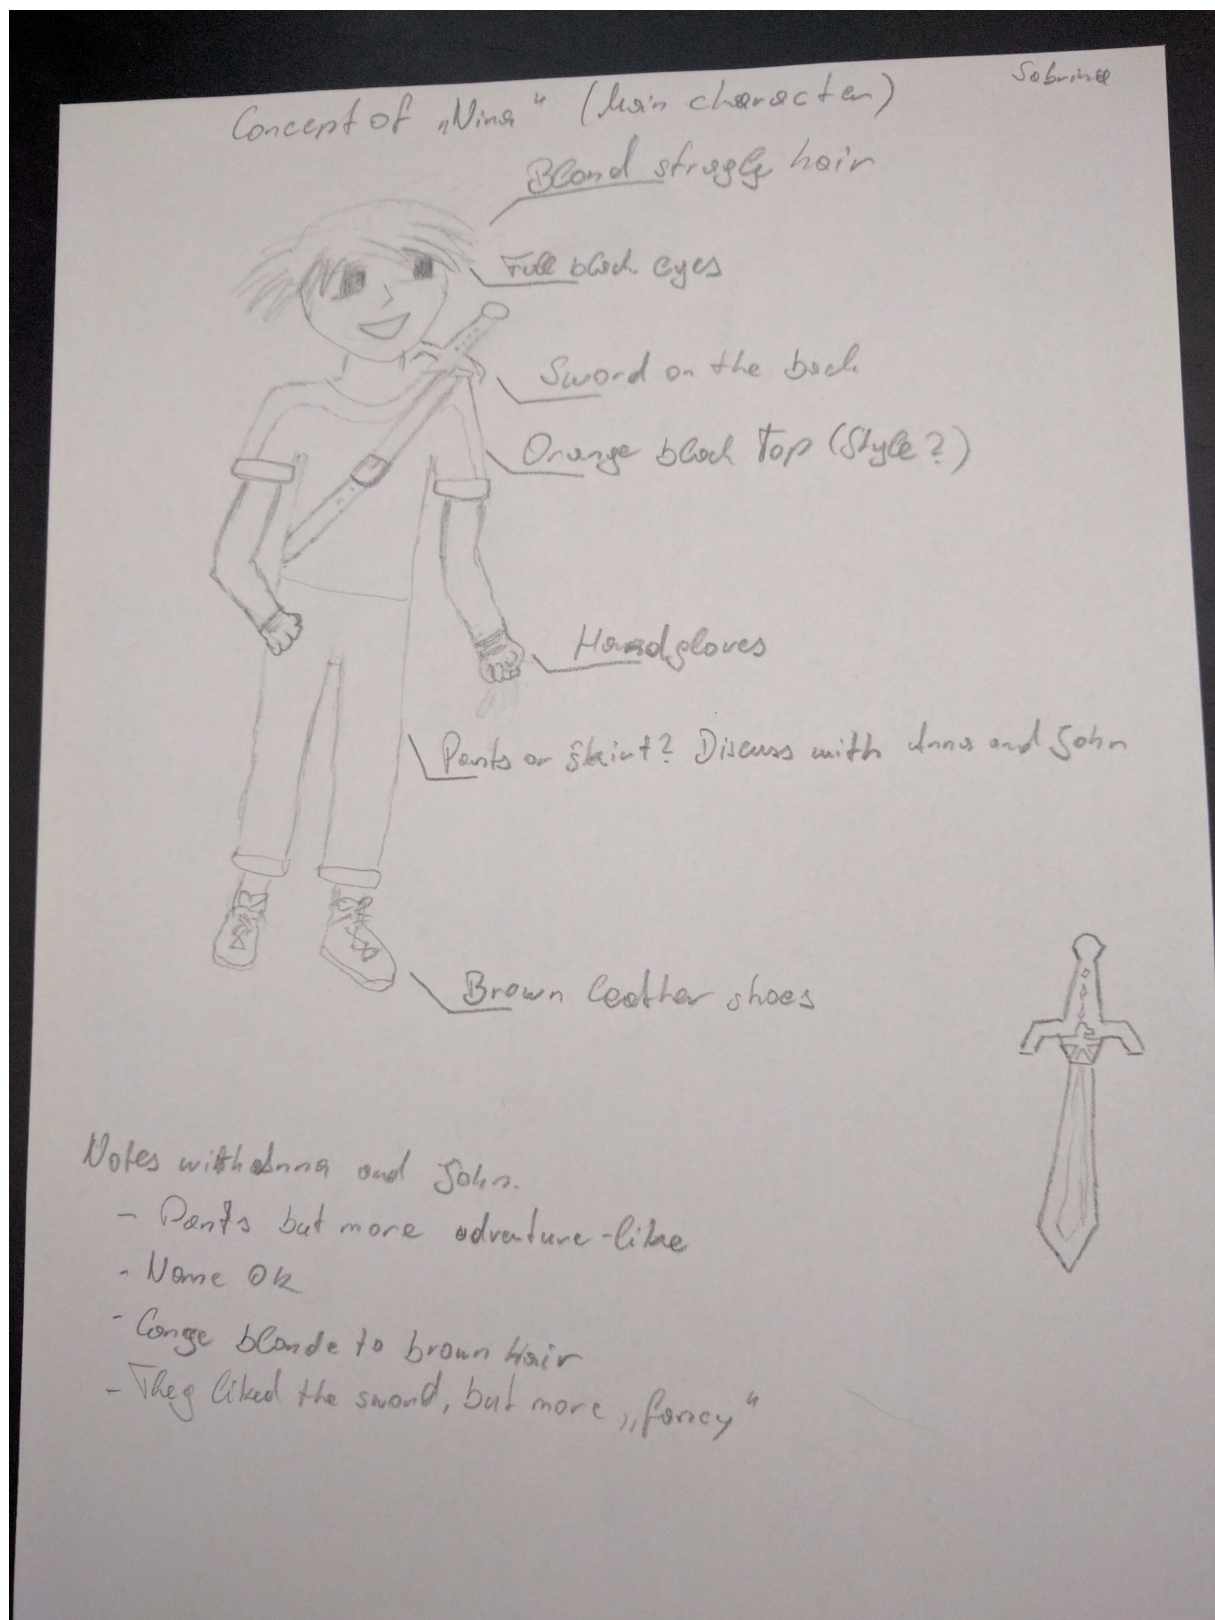 Sabrina
Concept of „Nina“ (Main character)
Blond strugly hair
Full black eyes
Sword on the back
Orange black Top (Style?)
Handgloves
Pants or skirt? Discuss with Anna and John
Brown leather shoes
Notes with Anna and John.
- Pants but more adventure-like
- Name OK
- Cange blonde to brown Hair
- They liked the sword, but more „fancy“